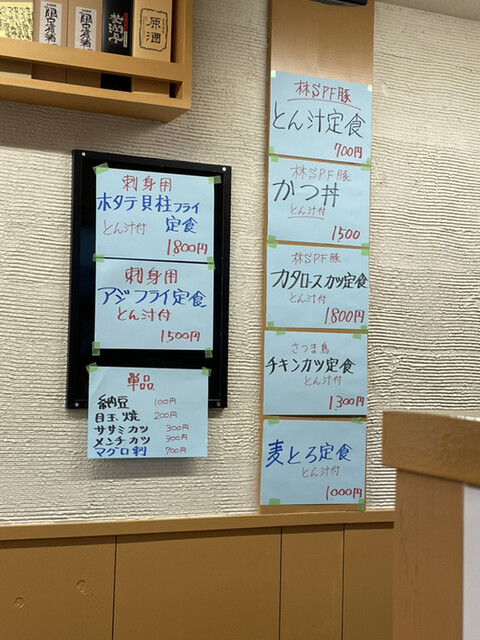 原酒
刺身用
ホタテ貝柱フライ
定食
とん汁付
1800円
刺身用
アジフライ定食
とん汁付
1500円
単品
納豆 100円
目玉焼 200円
ササミカツ 300円
メンチカツ 300円
マグロ刺 700円
林SPF豚
とん汁定食
700円
林SPF豚
かつ丼
とん汁付
1500
林SPF豚
カタロースカツ定食
とん汁付
1800円
さつま鳥
チキンカツ定食
とん汁付
1300円
麦とろ定食
とん汁付
1000円